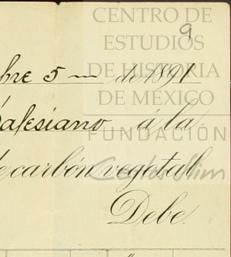 CENTRO DE
ESTUDIOS
9
bre 5 — de 1891
DE HISTORIA
DE MÉXICO
alesiano á la
FUNDACIÓN
de carbón vegetal
Carlos Slim
Debe